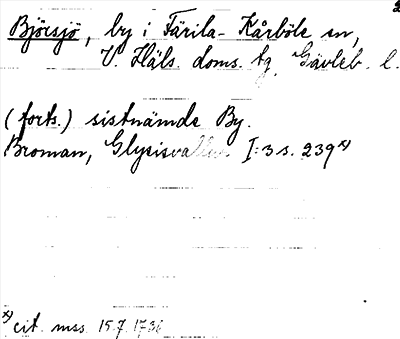 2
Björsjö, by i Färila-Kårböle sn,
V. Häls. doms. tg, Gävleb. l.
(forts.) sistnämda By.
Broman, Glysisvallur I:3 s. 239 x)
x) cit. mss. 15.7.1736